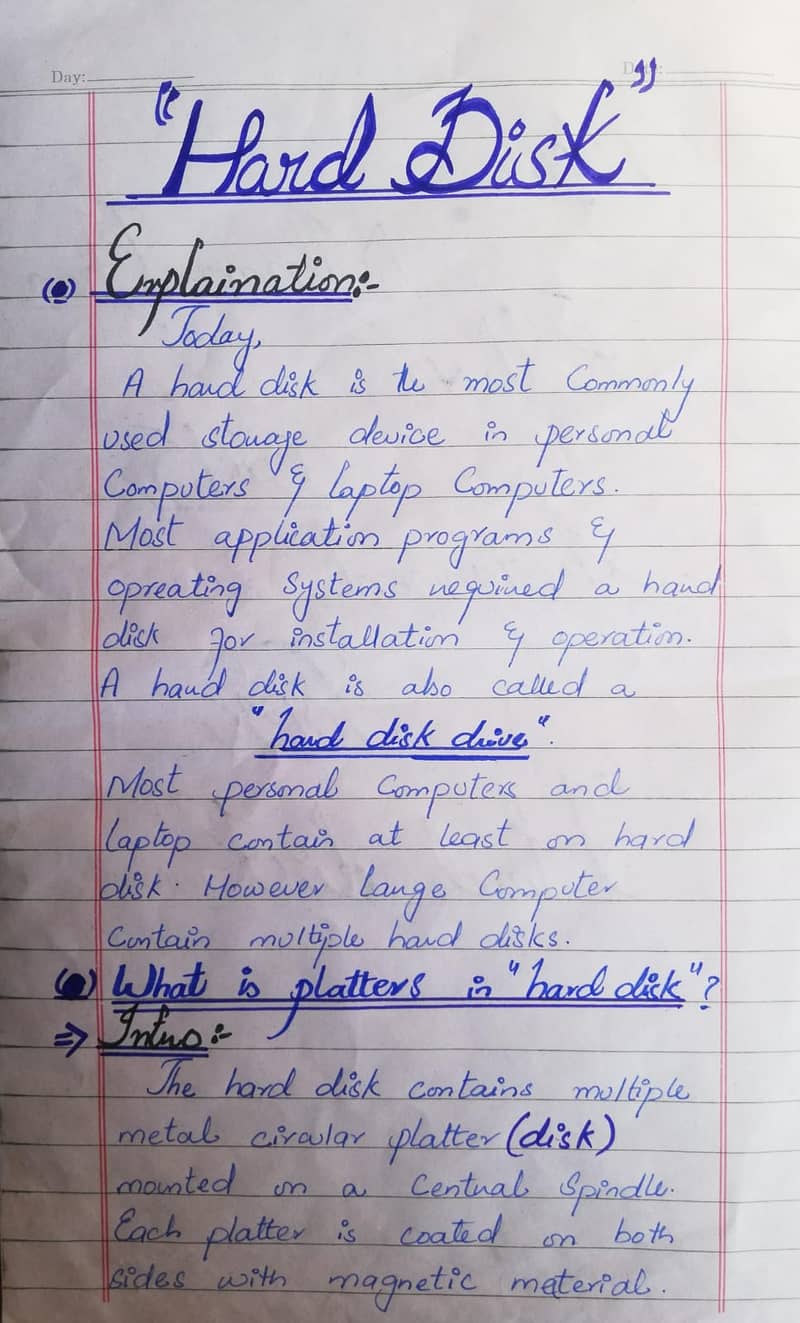 Day:
"Hard Disk"
(•) Explaination:-
Today,
A hard disk is the most Commonly
used storage device in personal
Computers & laptop Computers.
Most application programs &
opreating Systems required a hard
disk for installation & operation.
A hard disk is also called a
"hard disk drive".
Most personal Computers and
laptop contain at least on hard
disk. However large Computer
Contain multiple hard disks.
(•) What is platters in "hard disk"?
⇒ Intro:-
The hard disk contains multiple
metal circular platter (disk)
mounted on a Central Spindle.
Each platter is coated on both
sides with magnetic material.